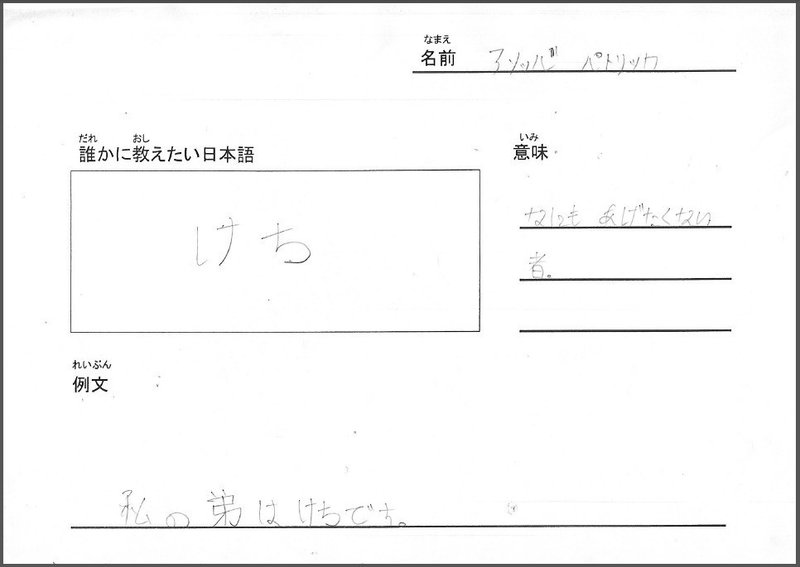 なまえ
名前 アソッバ゙ パトリック
だれ おし
誰かに教えたい日本語
けち
いみ
意味
なにも あげたくない
者。
れいぶん
例文
私の弟はけちです。